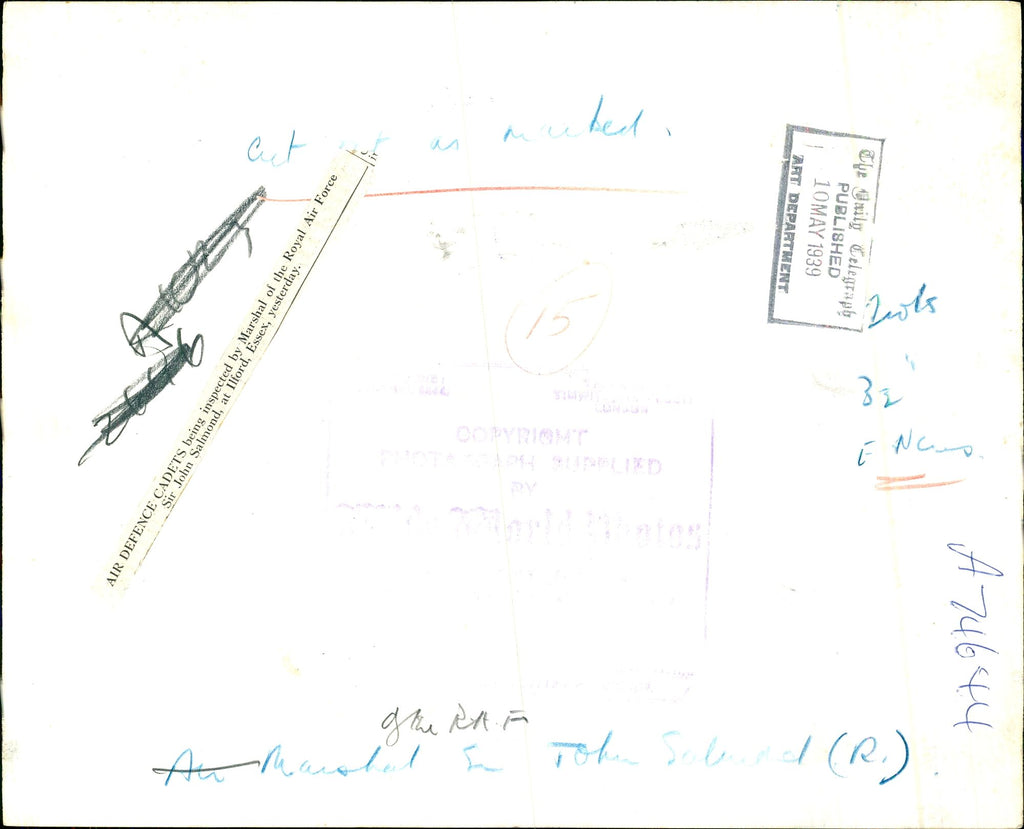 Cut out as marked.
The Daily Telegraph
PUBLISHED
10 MAY 1939
ART DEPARTMENT
AIR DEFENCE CADETS being inspected by Marshal of the Royal Air Force
Sir John Salmond, at Ilford, Essex, yesterday.
15
3½"
F News.
COPYRIGHT
PHOTOGRAPH SUPPLIED
BY
Wide World Photos
A-74644
of the R.A.F
Air Marshal Sir John Salmond (R.)